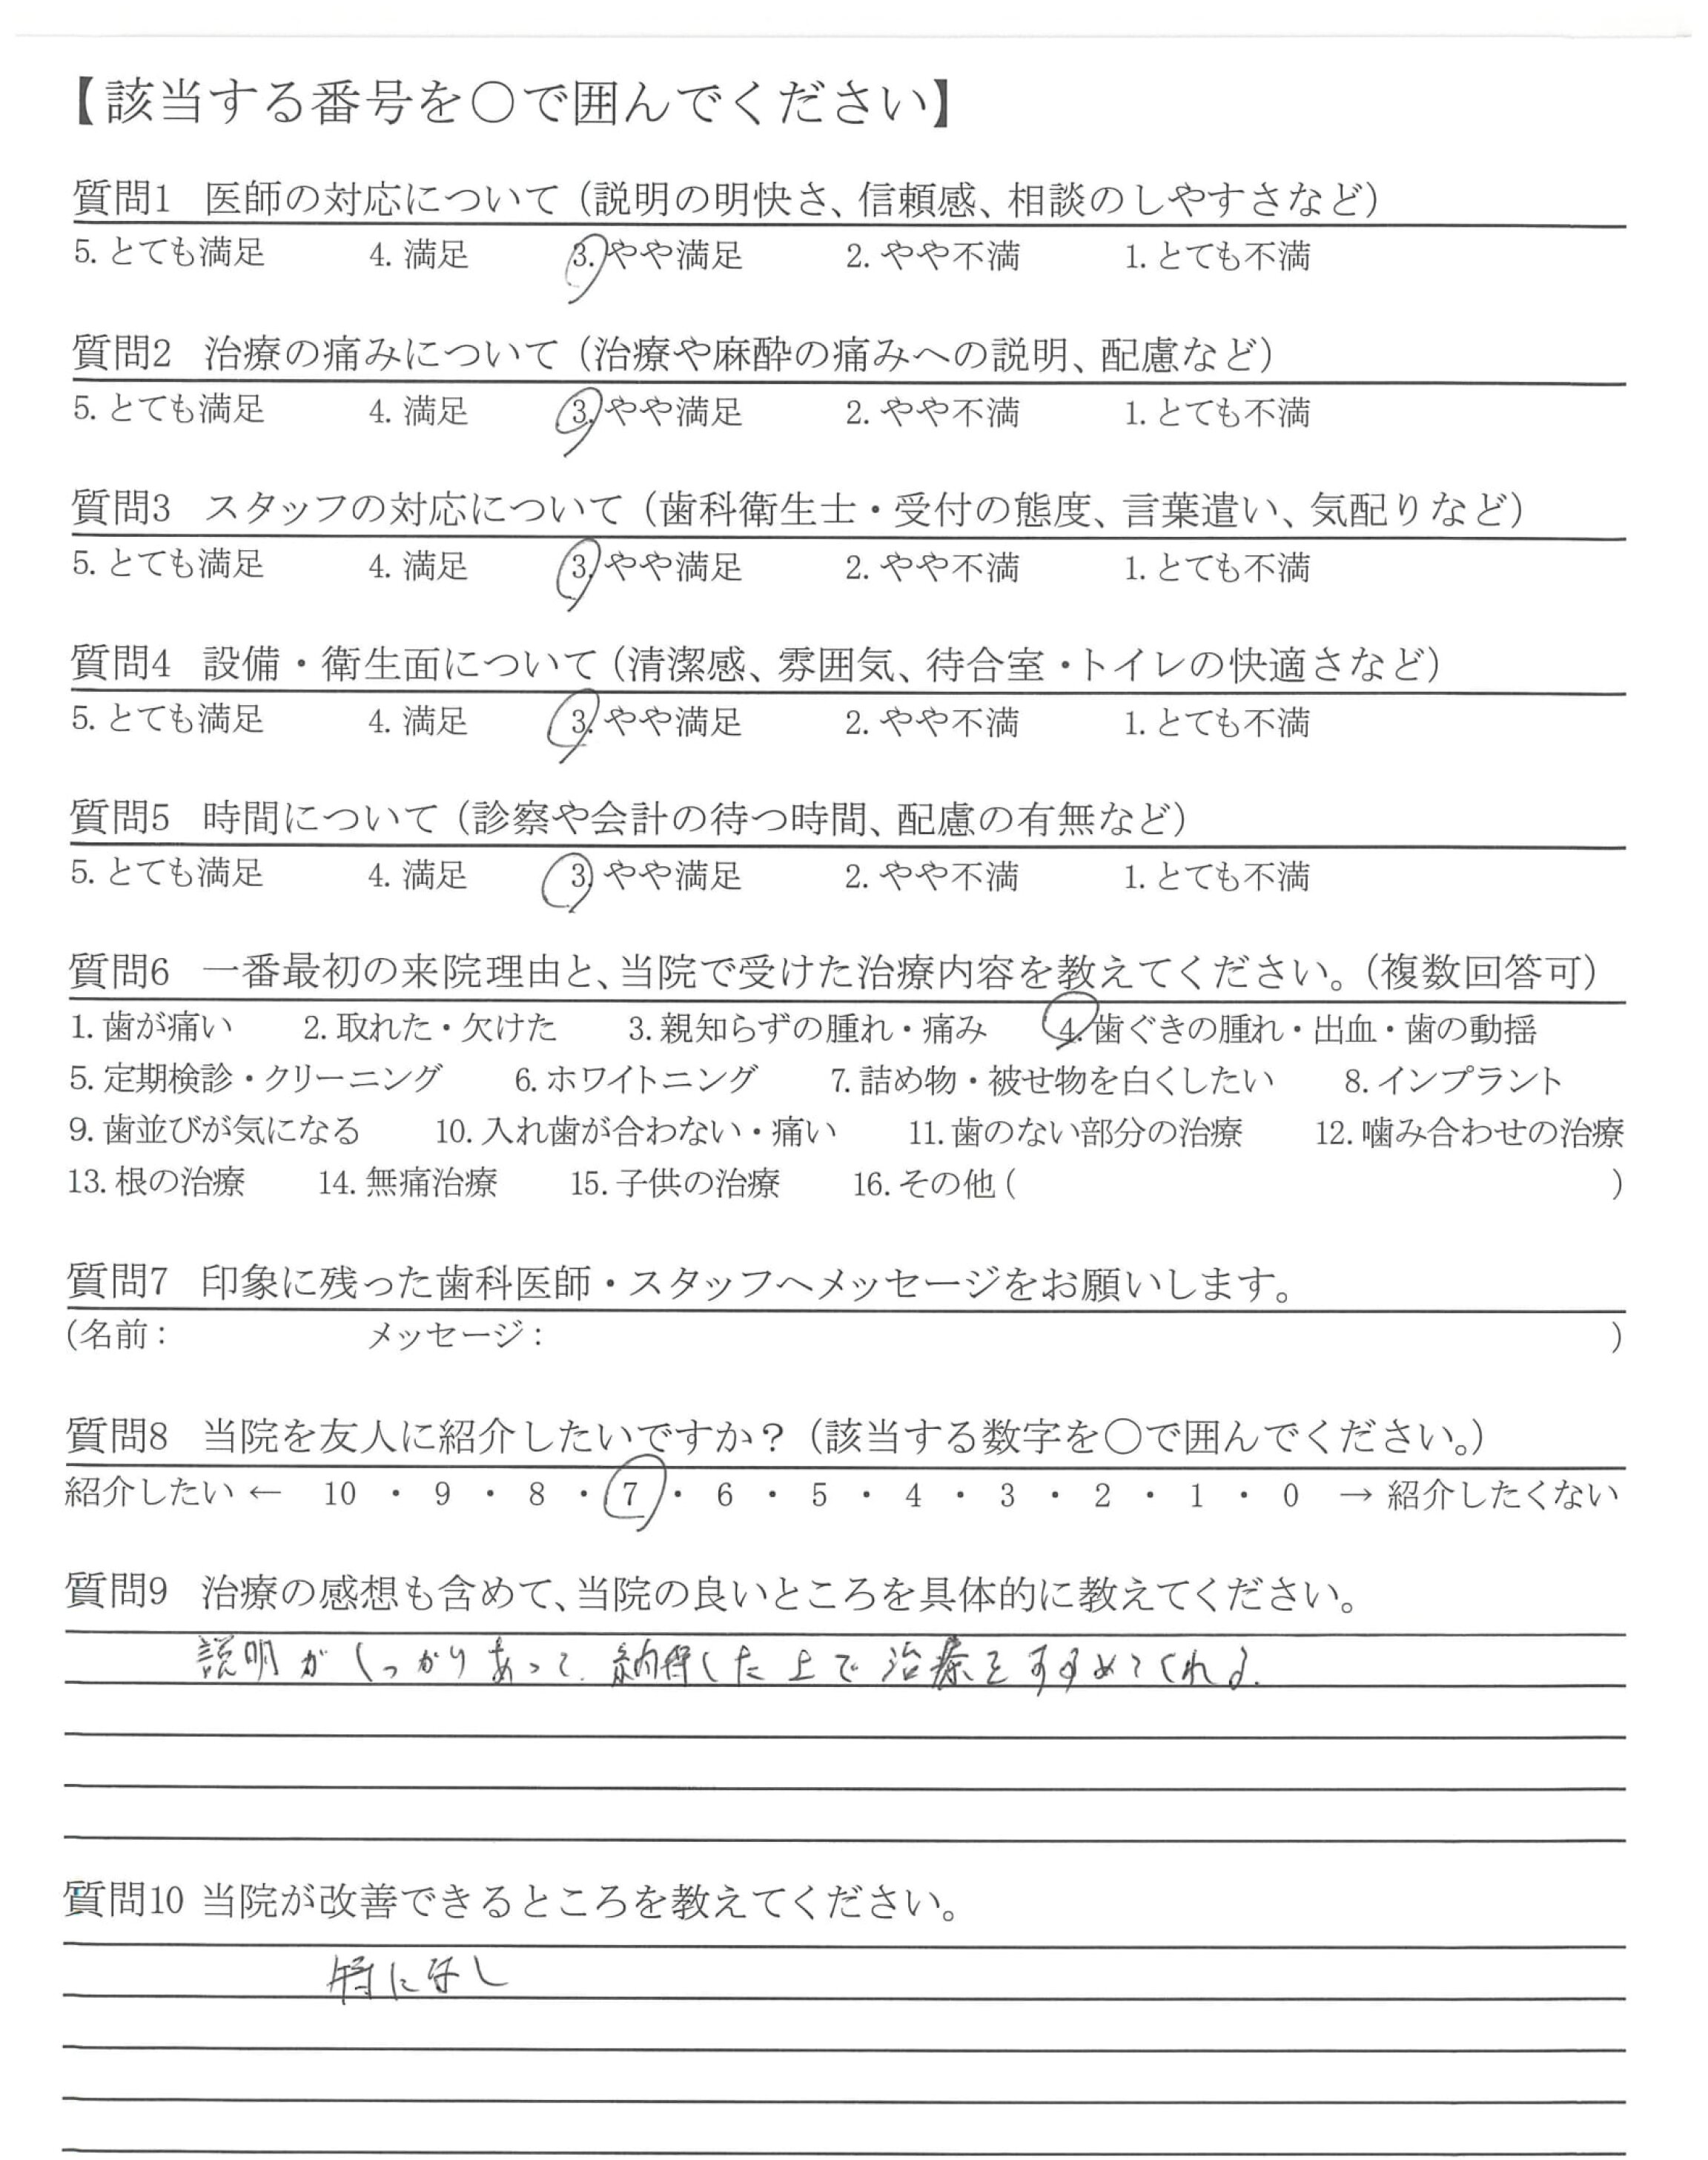 【該当する番号を○で囲んでください】
質問1 医師の対応について（説明の明快さ、信頼感、相談のしやすさなど）
5. とても満足 4. 満足 3. やや満足 2. やや不満 1. とても不満
質問2 治療の痛みについて（治療や麻酔の痛みへの説明、配慮など）
5. とても満足 4. 満足 3. やや満足 2. やや不満 1. とても不満
質問3 スタッフの対応について（歯科衛生士・受付の態度、言葉遣い、気配りなど）
5. とても満足 4. 満足 3. やや満足 2. やや不満 1. とても不満
質問4 設備・衛生面について（清潔感、雰囲気、待合室・トイレの快適さなど）
5. とても満足 4. 満足 3. やや満足 2. やや不満 1. とても不満
質問5 時間について（診察や会計の待つ時間、配慮の有無など）
5. とても満足 4. 満足 3. やや満足 2. やや不満 1. とても不満
質問6 一番最初の来院理由と、当院で受けた治療内容を教えてください。（複数回答可）
1. 歯が痛い 2. 取れた・欠けた 3. 親知らずの腫れ・痛み 4. 歯ぐきの腫れ・出血・歯の動揺
5. 定期検診・クリーニング 6. ホワイトニング 7. 詰め物・被せ物を白くしたい 8. インプラント
9. 歯並びが気になる 10. 入れ歯が合わない・痛い 11. 歯のない部分の治療 12. 噛み合わせの治療
13. 根の治療 14. 無痛治療 15. 子供の治療 16. その他 ( )
質問7 印象に残った歯科医師・スタッフへメッセージをお願いします。
(名前： メッセージ： )
質問8 当院を友人に紹介したいですか？（該当する数字を○で囲んでください。）
紹介したい ← 10 ・ 9 ・ 8 ・ 7 ・ 6 ・ 5 ・ 4 ・ 3 ・ 2 ・ 1 ・ 0 → 紹介したくない
質問9 治療の感想も含めて、当院の良いところを具体的に教えてください。
説明がしっかりあって、納得した上で治療をすすめてくれる。
質問10 当院が改善できるところを教えてください。
特になし